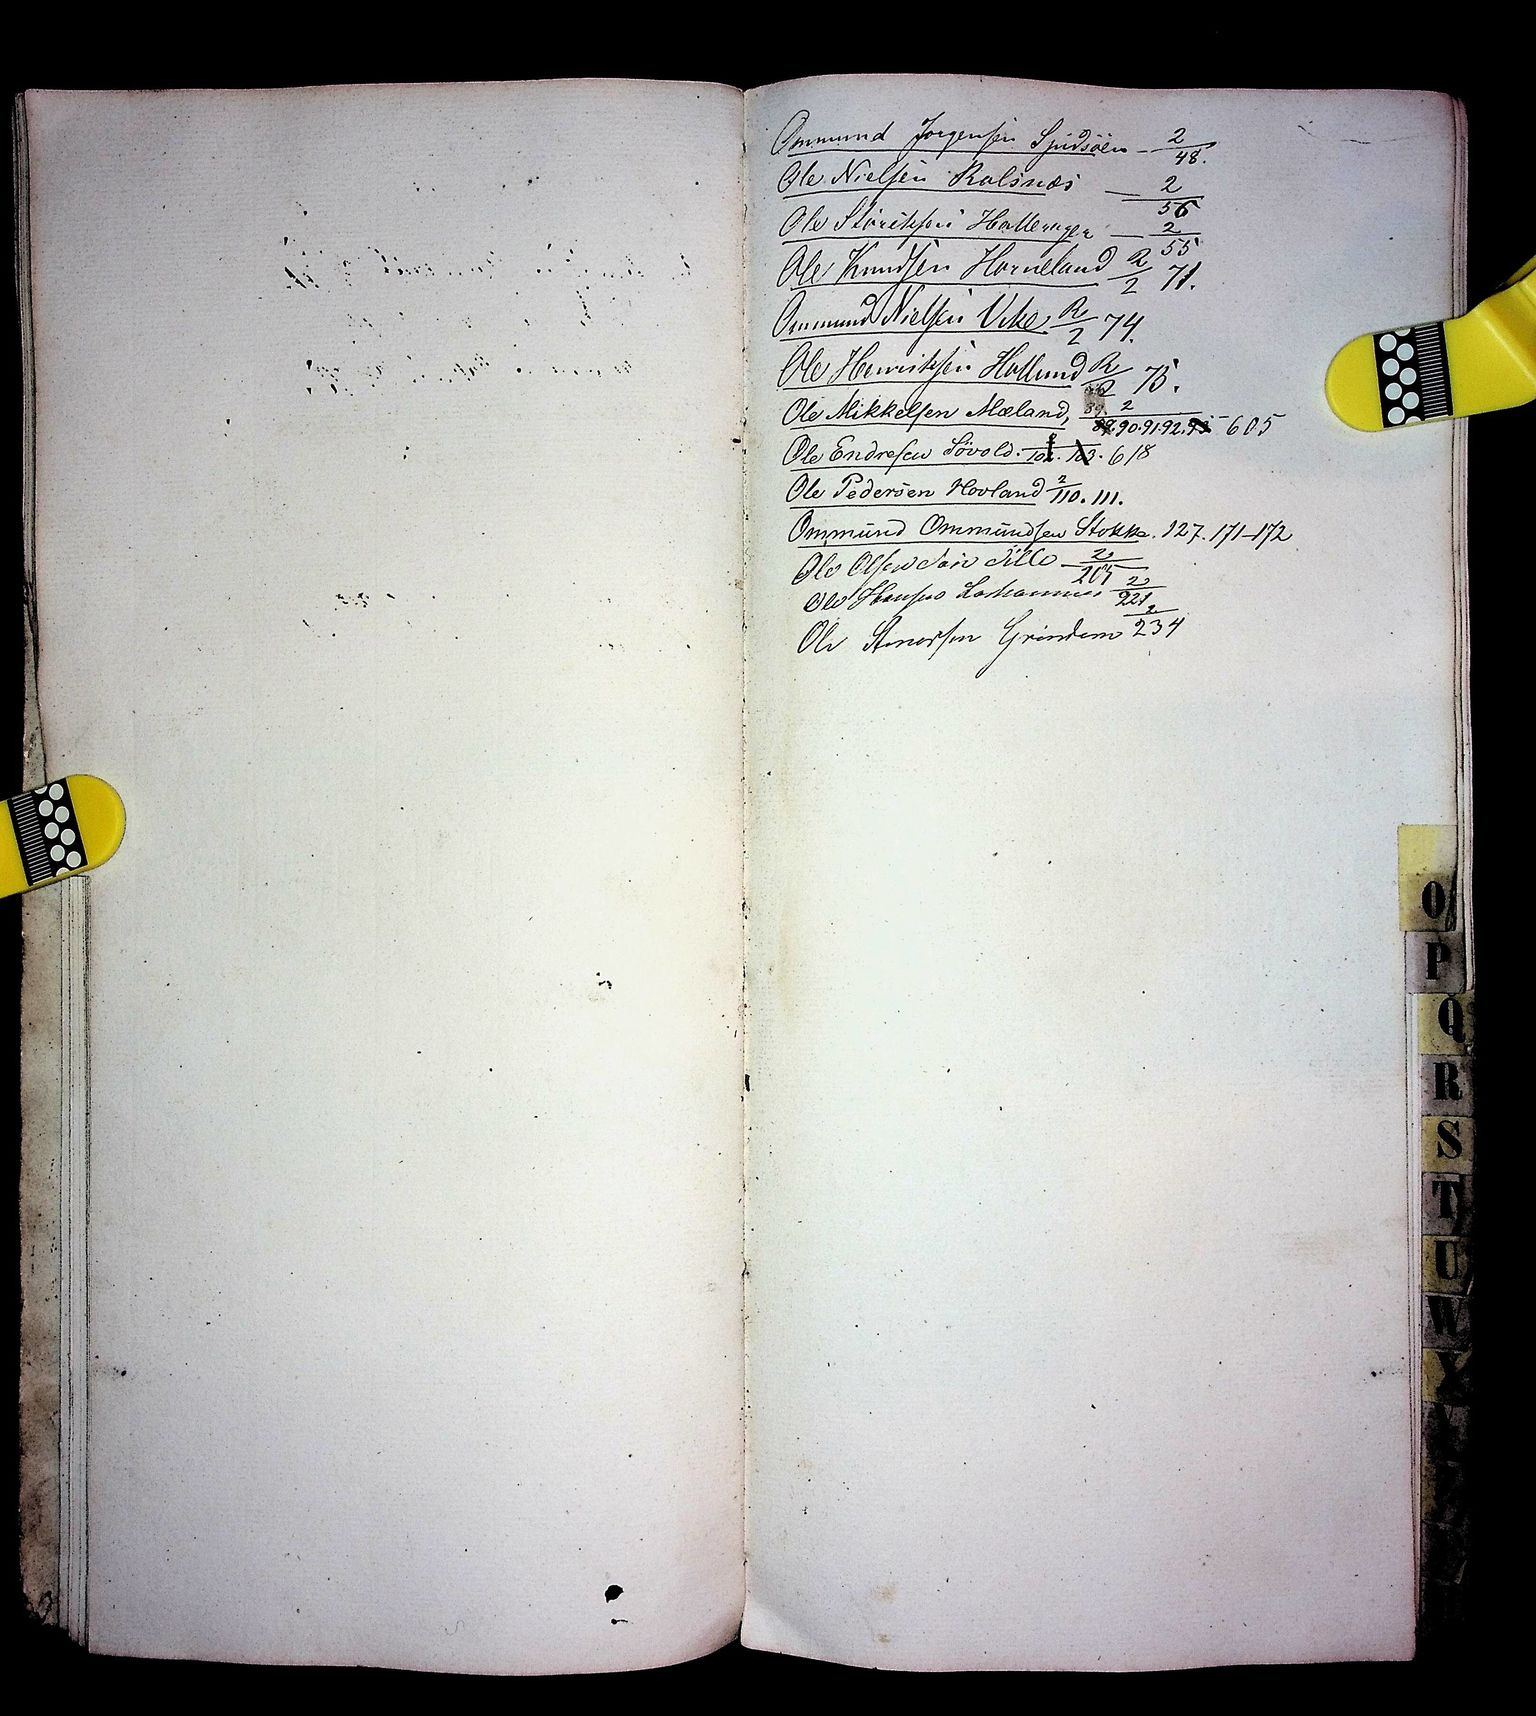 Ommund Jorgensen Spidsöen - 2/48.
Ole Nielsen Ralsnæs — 2/56
Ole Hallerager — 2/55
Ole Knudsen Horneland R/2 71.
Ommund Nielsen Vike R/2 74.
Ole Henriksen Hollund R/2 75.
Ole Mikkelsen Mæland, 2/89.90.91.92.93 - 605
Ole Endresen Sövold. 102. 103. 618
Ole Pedersen Hovland 2/110. 111.
Ommund Ommundsen Stokke. 127. 171-172
Ole Olsen 2/205
Ole Hansen 2/221
Ole Grindem 2/234
O
P
Q
R
S
T
U
W
X